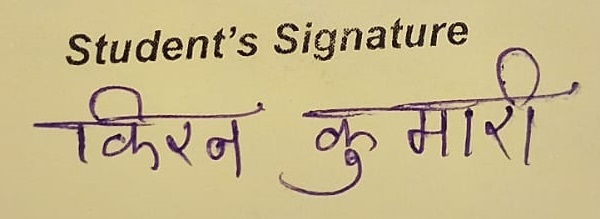 Student's Signature
किरन कुमारी